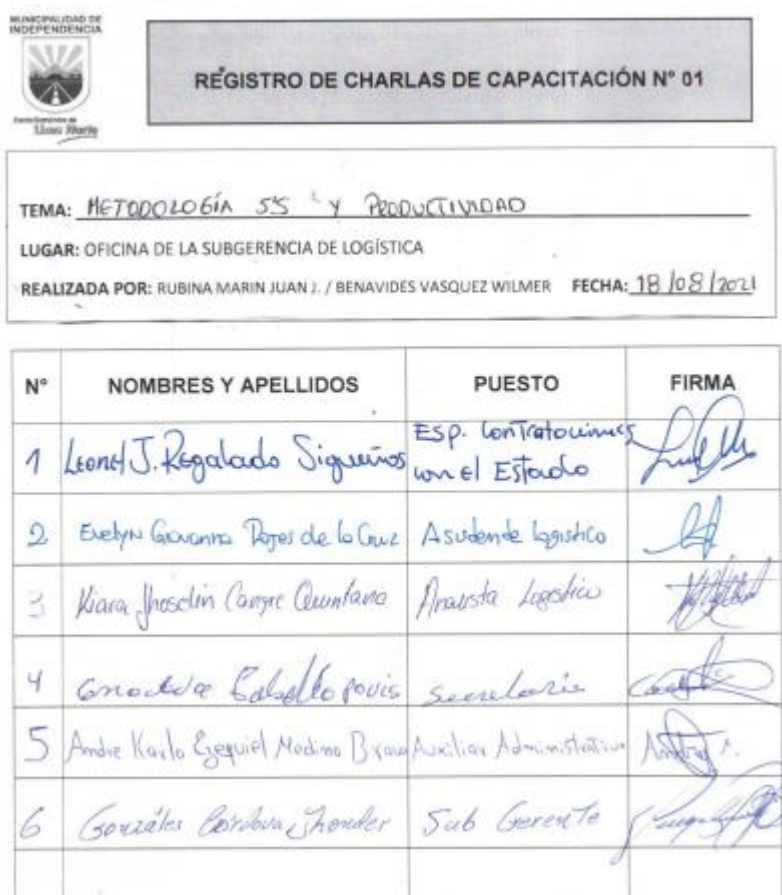 MUNICIPALIDAD DE
INDEPENDENCIA
Lima Norte
REGISTRO DE CHARLAS DE CAPACITACIÓN N° 01
TEMA: METODOLOGÍA 5'S Y PRODUCTIVIDAD
LUGAR: OFICINA DE LA SUBGERENCIA DE LOGÍSTICA
REALIZADA POR: RUBINA MARIN JUAN J. / BENAVIDES VASQUEZ WILMER FECHA: 18/08/2021
N° NOMBRES Y APELLIDOS PUESTO FIRMA
1 Leonel J. Regalado Sigueñas Esp. Contrataciones
con el Estado
2 Evelyn Giovanna de la Cruz Asistente Logístico
3 Kiara Jhoselin Quintana Analista Logístico
4 Secretaria
5 Andre Karlo Ezequiel Medina Auxiliar Administrativo
6 Gonzáles Córdova Jhonder Sub Gerente